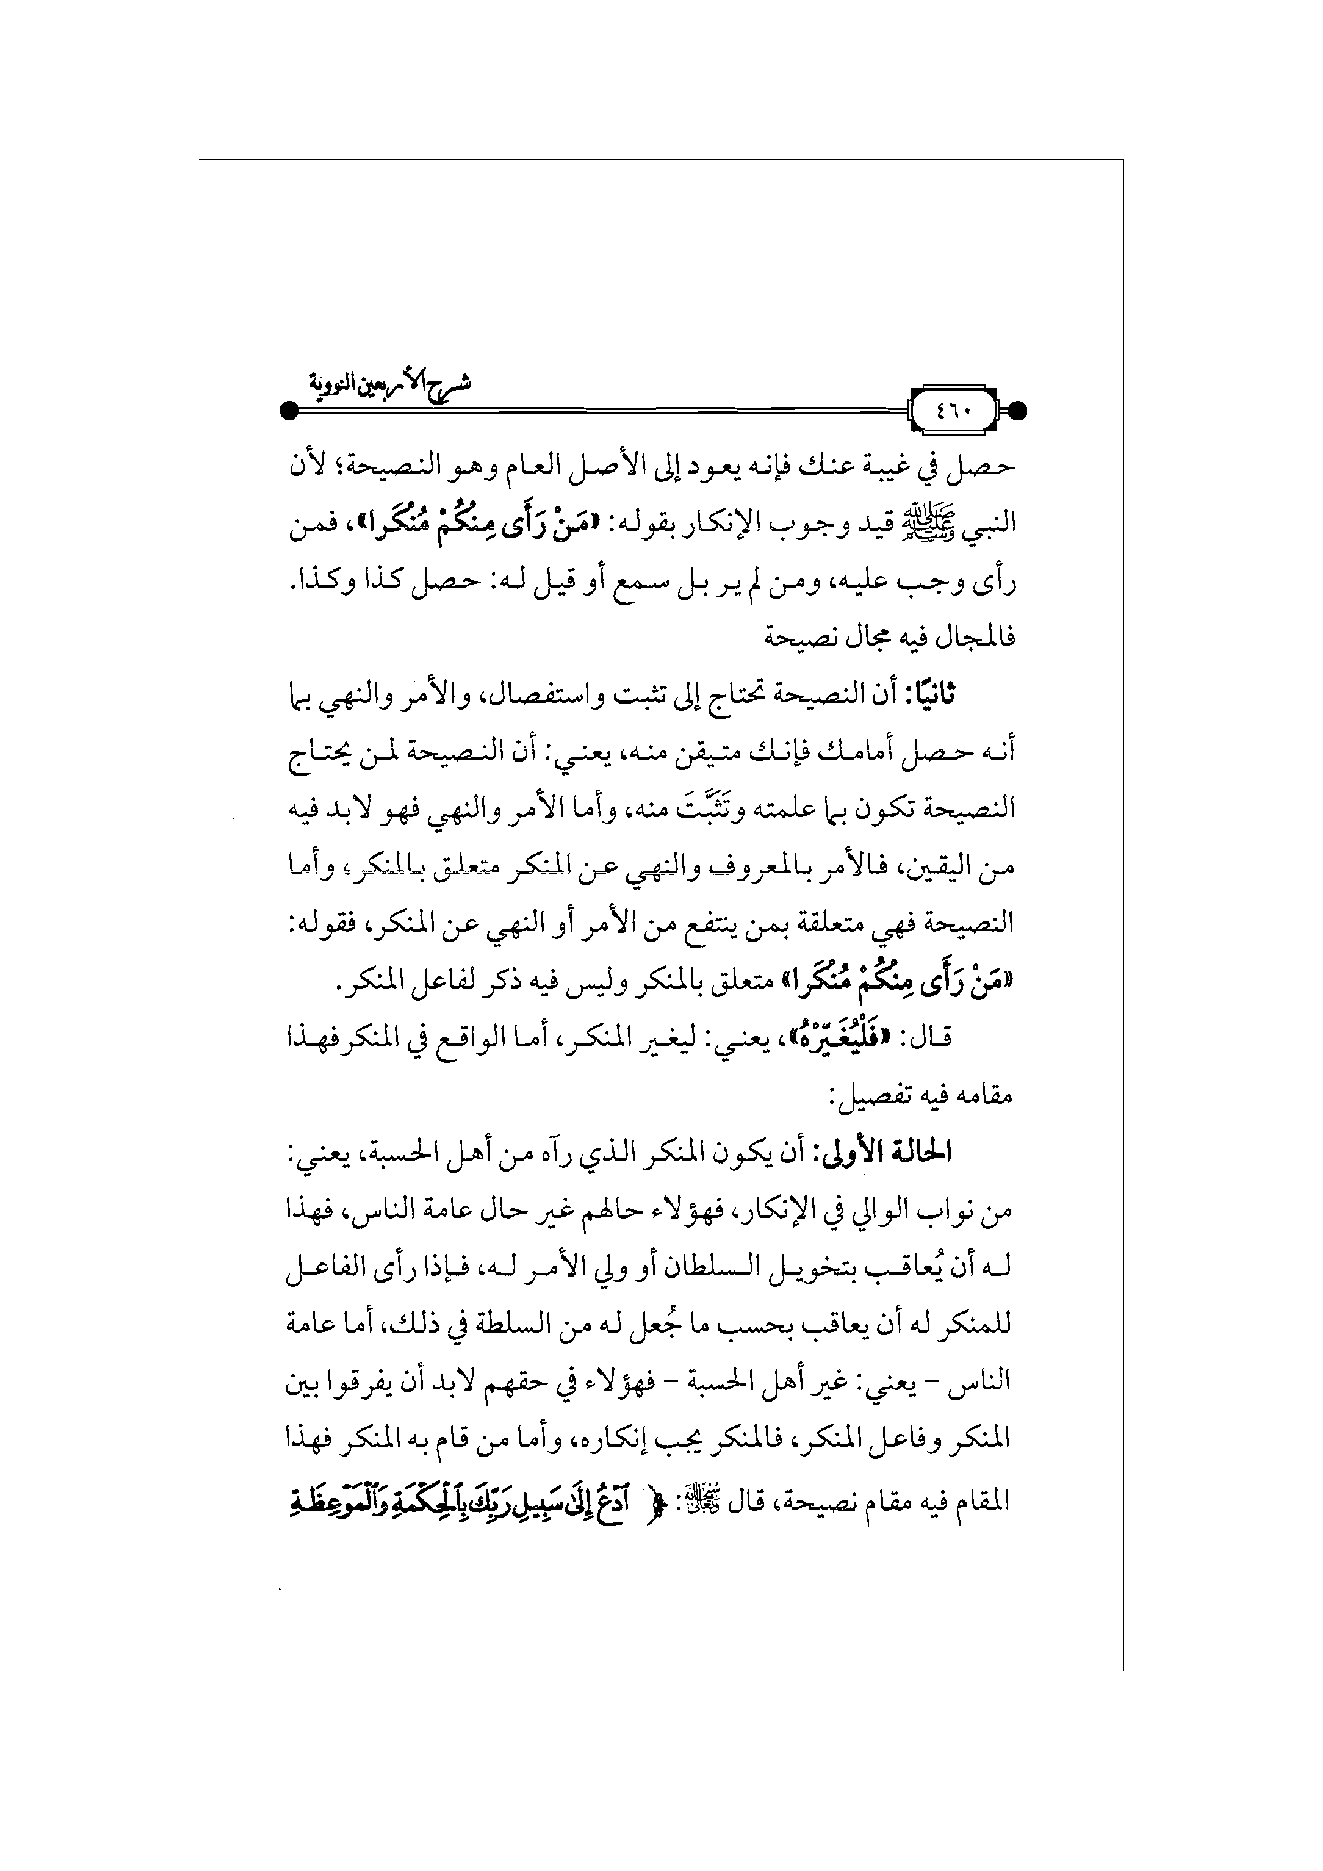 شرح الأربعين النووية
٤٦٠
حصل في غيبة عنك فإنه يعود إلى الأصل العام وهو النصيحة؛ لأن
النبي ﷺ قيد وجوب الإنكار بقوله: «مَنْ رَأَى مِنكُمْ مُنْكَرا»، فمن
رأى وجب عليه، ومن لم ير بل سمع أو قيل له: حصل كذا وكذا.
فالمجال فيه مجال نصيحة
ثانيًا: أن النصيحة تحتاج إلى تثبت واستفصال، والأمر والنهي بما
أنه حصل أمامك فإنك متيقن منه، يعني: أن النصيحة لمن يحتاج
النصيحة تكون بما علمته وتَثَبَّتَ منه، وأما الأمر والنهي فهو لابد فيه
من اليقين، فالأمر بالمعروف والنهي عن المنكر متعلق بالمنكر، وأما
النصيحة فهي متعلقة بمن ينتفع من الأمر أو النهي عن المنكر، فقوله:
«مَنْ رَأَى مِنكُمْ مُنْكَرا» متعلق بالمنكر وليس فيه ذكر لفاعل المنكر.
قال: «فَلْيُغَيِّرْهُ»، يعني: ليغير المنكر، أما الواقع في المنكر فهذا
مقامه فيه تفصيل:
الحالة الأولى: أن يكون المنكر الذي رآه من أهل الحسبة، يعني:
من نواب الوالي في الإنكار، فهؤلاء حالهم غير حال عامة الناس، فهذا
له أن يُعاقب بتخويل السلطان أو ولي الأمر له، فإذا رأى الفاعل
للمنكر له أن يعاقب بحسب ما جُعل له من السلطة في ذلك، أما عامة
الناس – يعني: غير أهل الحسبة – فهؤلاء في حقهم لابد أن يفرقوا بين
المنكر وفاعل المنكر، فالمنكر يجب إنكاره، وأما من قام به المنكر فهذا
المقام فيه مقام نصيحة، قال : ﴿ ٱدْعُ إِلَىٰ سَبِيلِ رَبِّكَ بِٱلْحِكْمَةِ وَٱلْمَوْعِظَةِ